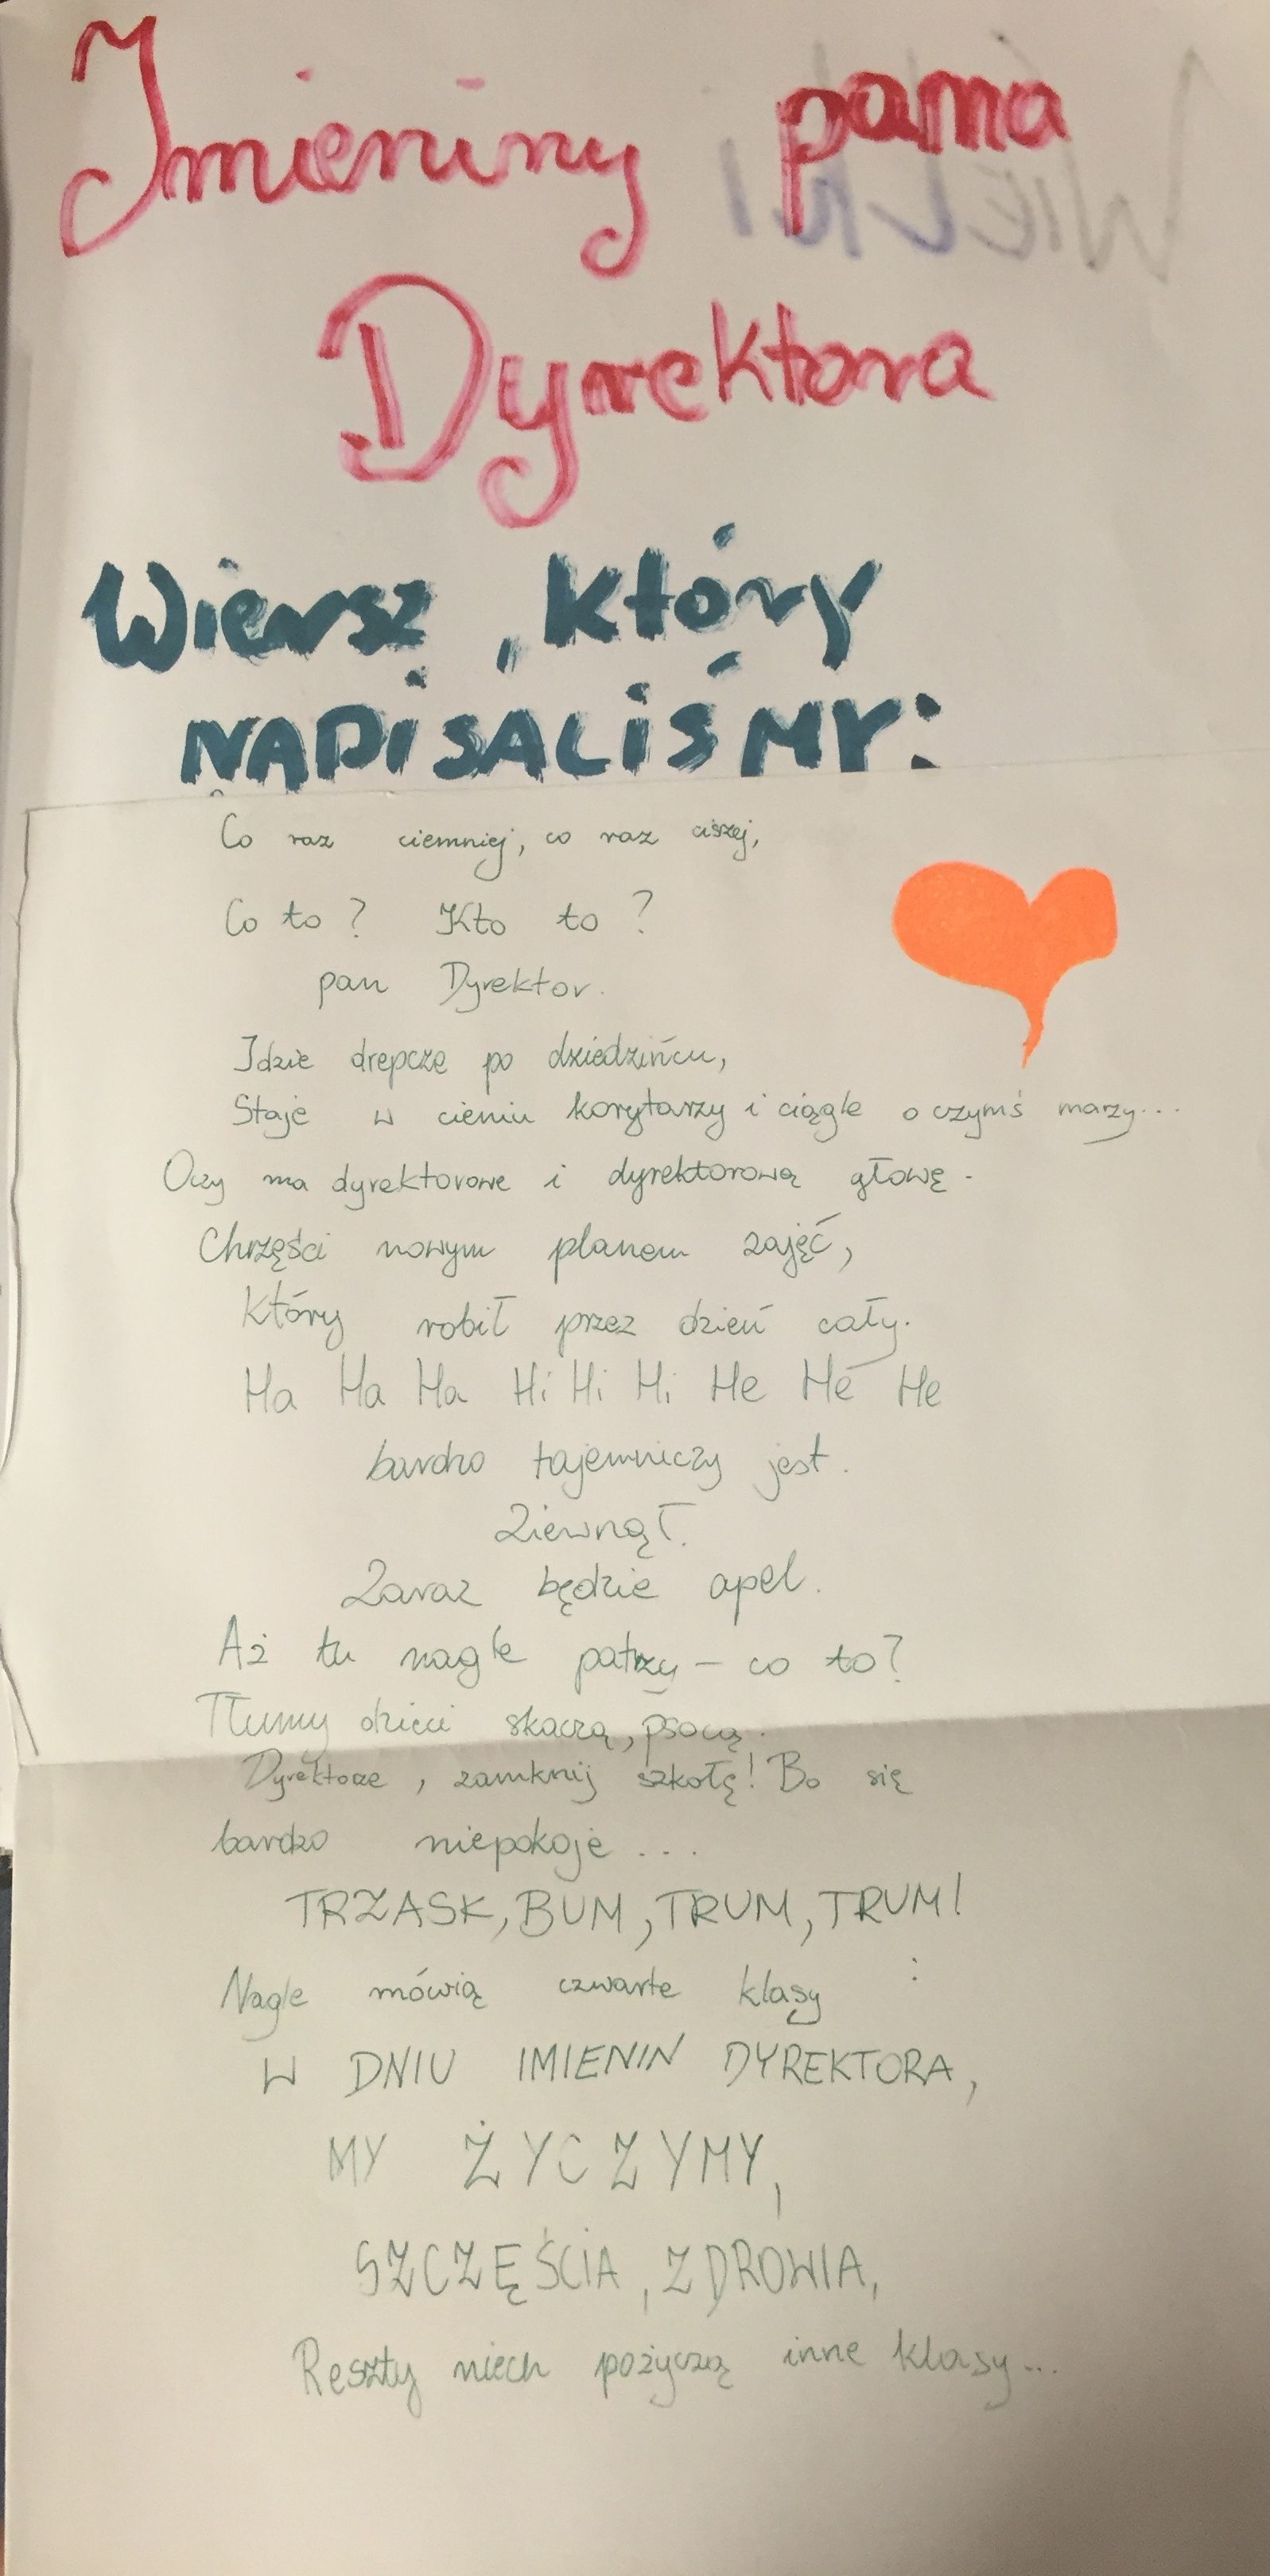 Imieniny pana
WIELKI
Dyrektora
Wiersz, który
NAPISALIŚMY:
Co raz ciemniej, co raz ciszej,
Co to? Kto to?
pan Dyrektor.
Idzie drepcze po dziedzińcu,
Staje w cieniu korytarzy i ciągle o czymś marzy...
Oczy ma dyrektorowe i dyrektorową głowę.
Chrzęści nowym planem zajęć,
Który robił przez dzień cały.
Ha Ha Ha Hi Hi Hi He He He
bardzo tajemniczy jest.
Ziewnął.
Zaraz będzie apel.
Aż tu nagle patrzy – co to?
Tłumy dzieci skaczą, psocą.
Dyrektorze, zamknij szkołę! Bo się
bardzo niepokoję...
TRZASK, BUM, TRUM, TRUM!
Nagle mówią czwarte klasy :
W DNIU IMIENIN DYREKTORA,
MY ŻYCZYMY,
SZCZĘŚCIA, ZDROWIA,
Reszty niech pożyczą inne klasy...